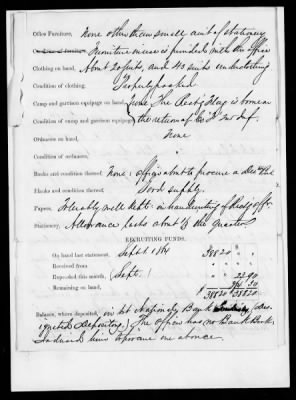 Office Furniture, None other than small amt of stationery
Furniture in use is furnished with the office
Clothing on hand, About 20 suits, and 40 suits underclothing
Condition of clothing, Properly packed
Camp and garrison equipage on hand, None. The Rect'g flag is borne on
Condition of camp and garrison equipage, the return of Co
Ordnance on hand, None
Condition of ordnance, "
Books and condition thereof, None; officer about to procure a
Blanks and condition thereof, Good supply.
Papers, Tolerably well kept - in handwriting of Rectg offr.
Stationery, Allowance lasts about 1/3 the quarter
RECRUITING FUNDS.
On hand last statement, Sept 1 1864 38820 " "
Received from " "
Expended this month, (Sept.) 22 90
Remaining on hand, 30
$ 38820 38820
Balance, where deposited, in 1st National Bank
Depository.) The officer has no Bank Book.
Instructed him to procure one at once.